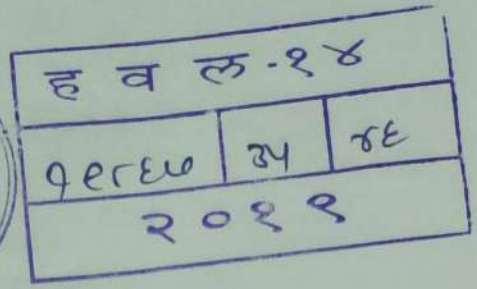 ह व ल-१४
१९८६७ ३५ ४६
२०१९